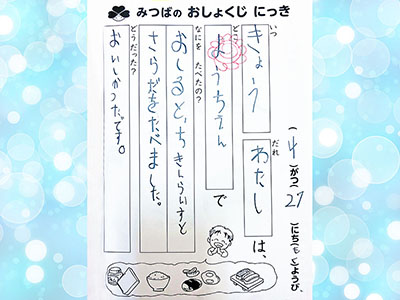 みつばの おしょくじ にっき
(4)がつ(27)にち(も)ようび、
いつ
きょう
だれ
わたし は、
どこ
ようちえん で
なにを たべたの?
おしると、ちきんらいすと
さらだをたべました。
どうだった?
おいしかったです。